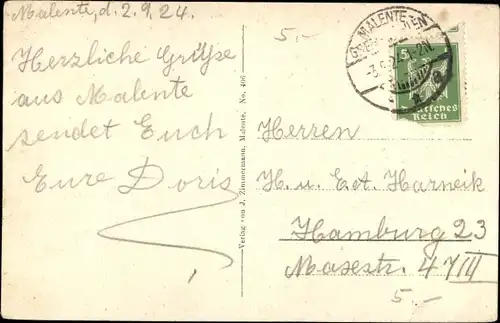 Malente, d. 2.9.24.
Herzliche Grüße
aus Malente
sendet Euch
Eure Doris
Verlag von J. Zimmermann, Malente, No. 406
5.-
MALENTE
5
Deutsches
Reich
Herren
H. u. Ed. Harneik
Hamburg 23
Masestr. 47 III
5.-